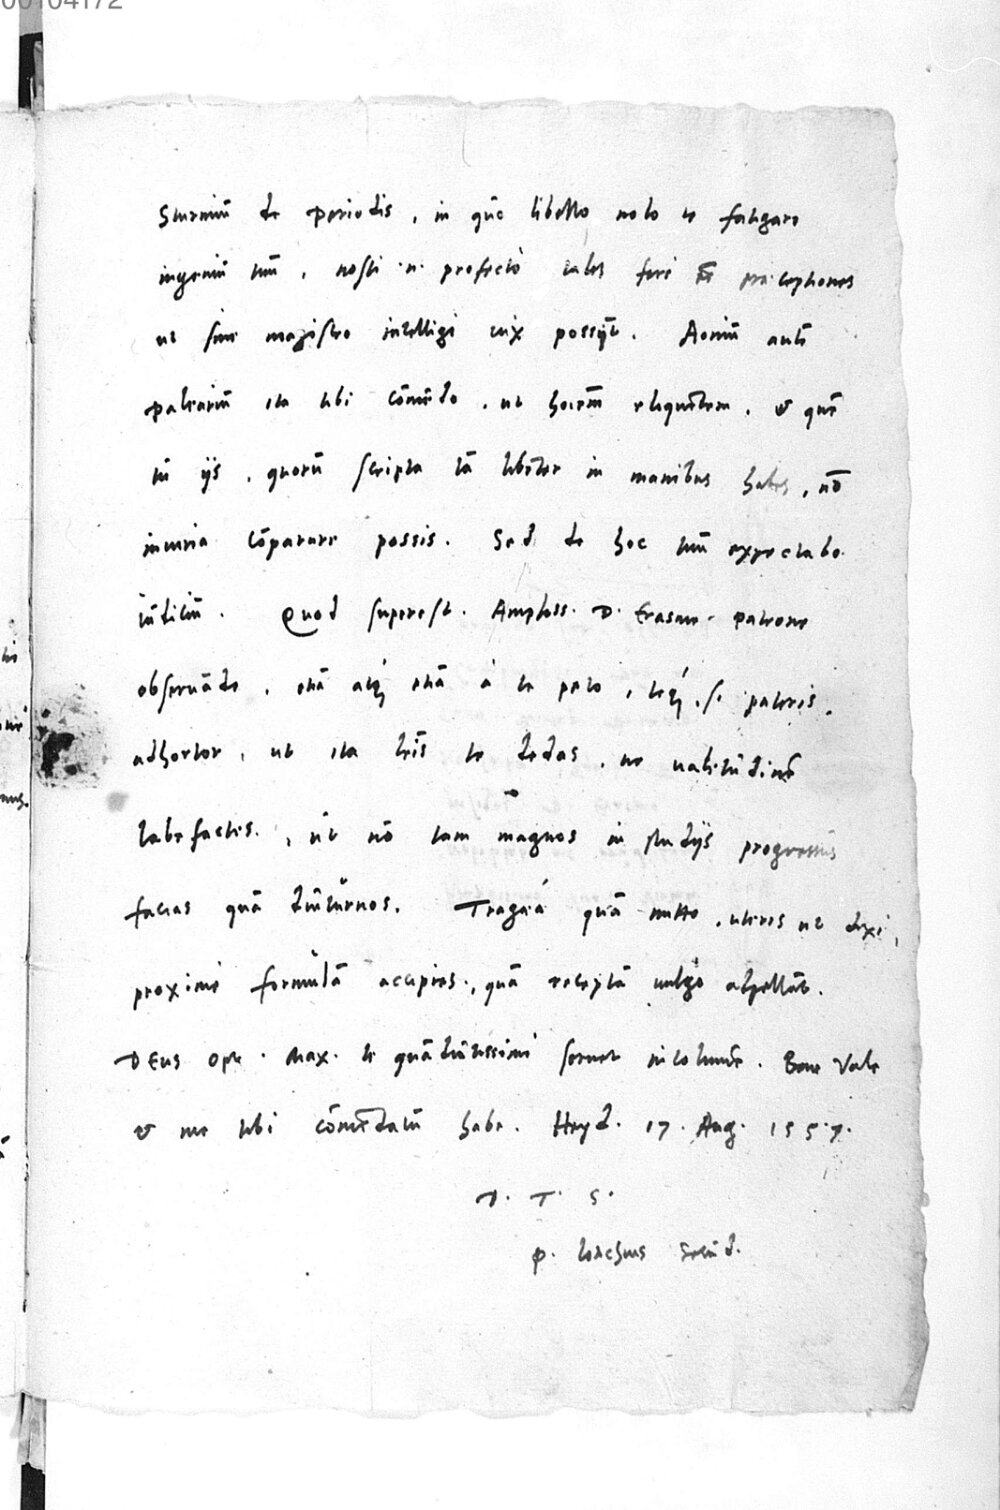 00104172
Sturmiū de periodis, in quē libello nolo te fatigare
ingeniū tuū, nosti .n. profectò tales ferè eē praeceptiones
ut sine magistro intelligi vix possint. Aoniū autē
palearium ita tibi cōmēdo, ut hoīem eloquētem, & quē
cū ijs, quorū scripta tā libēter in manibus habes, nō
iniuria cōparare possis. Sed de hoc tuū expectabo
iudiciū. Quod superest. Ampliss. D. Erasme patrone
obseruāde, etiā atq etiā à te peto, teq, si pateris,
adhortor, ut ita lrīs te dedas, ne ualitudinē
labefactes, ut nō tam magnos in studijs progressus
facias quā diuturnos. quā mitto, ut dixi,
proximè formulā accipies, quā receptā uulgò appellāt.
DEus opt. Max. te quā diutissimè seruet incolumē. Bene Vale
& me tibi cōmēdatū habe. Heyd. 17. Aug. 1557.
D. T. S.
P. Lotichius Secūd.